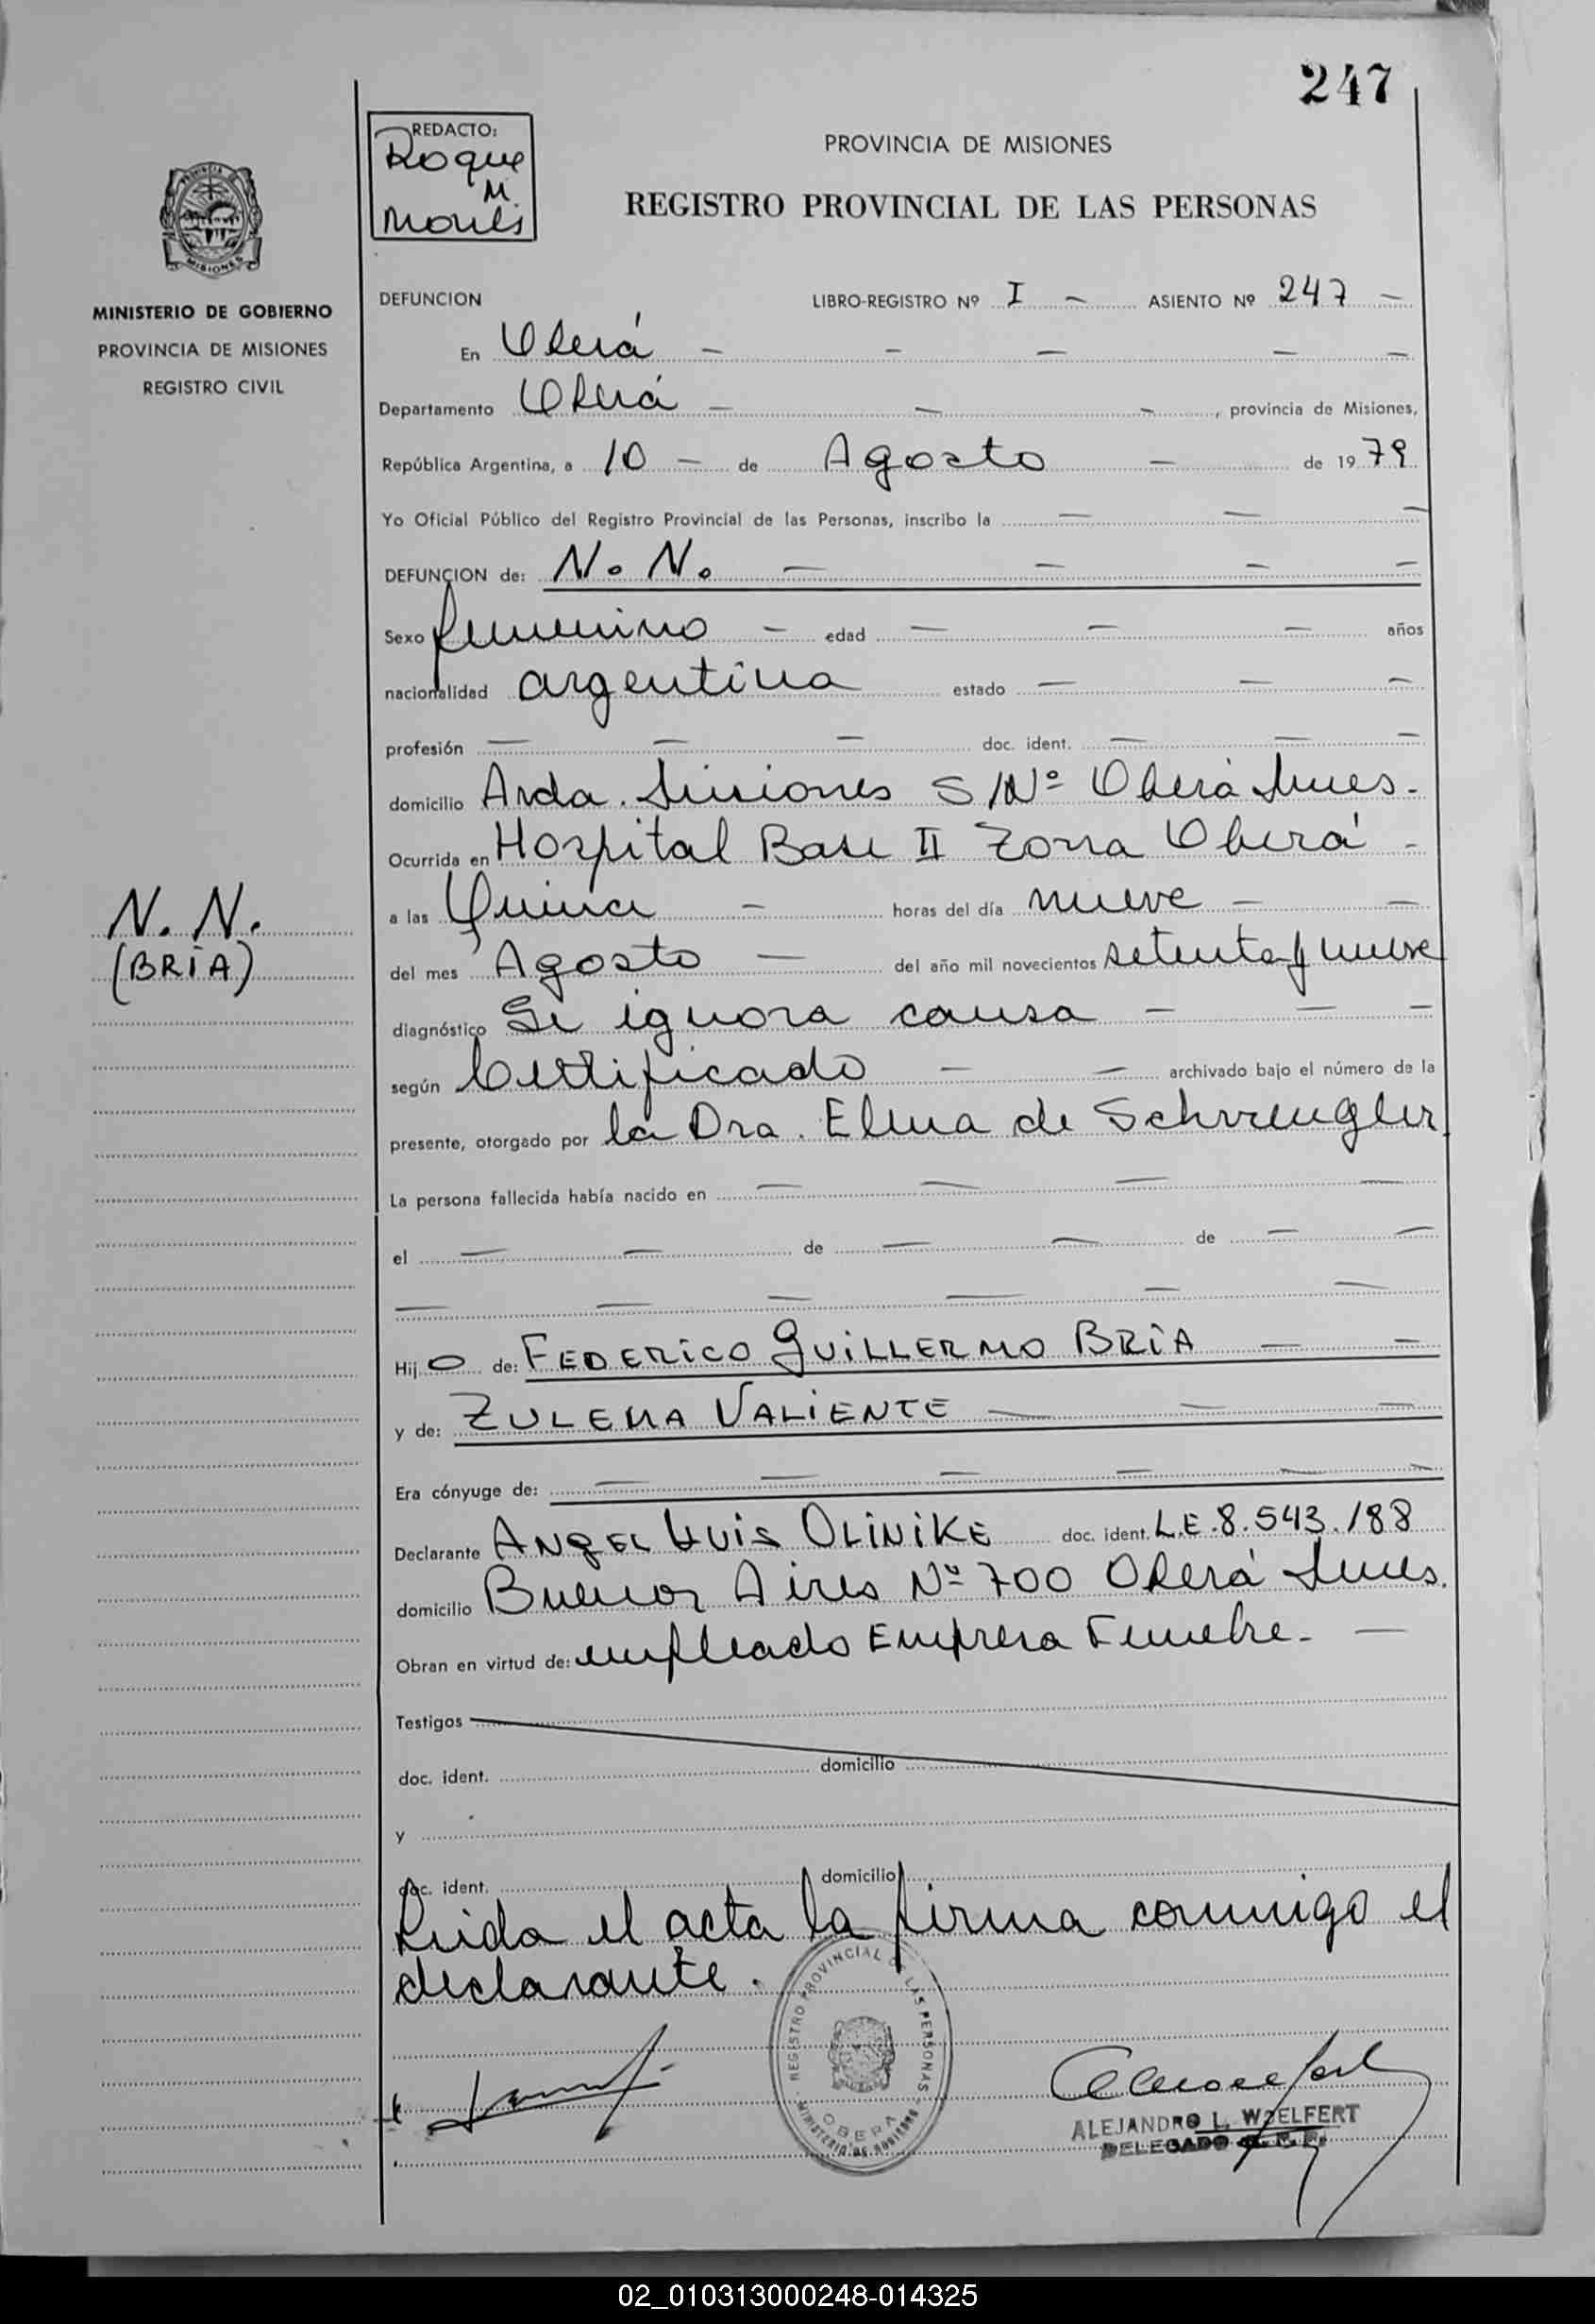 247
REDACTO:
Roque
M.
PROVINCIA DE MISIONES
REGISTRO PROVINCIAL DE LAS PERSONAS
MISIONES
MINISTERIO DE GOBIERNO
PROVINCIA DE MISIONES
REGISTRO CIVIL
DEFUNCION LIBRO-REGISTRO Nº I - ASIENTO Nº 247 -
En Oberá - - - - -
Departamento Oberá - - - , provincia de Misiones,
República Argentina, a 10 - de Agosto - de 1979
Yo Oficial Público del Registro Provincial de las Personas, inscribo la - - -
DEFUNCION de: N. N. - - - -
Sexo femenino - edad - - - años
nacionalidad argentina estado - - -
profesión - - - doc. ident. - - -
domicilio Avda. Misiones S/Nº Oberá Mnes.
Ocurrida en Hospital Base II Zona Oberá -
N. N.
(BRÍA)
a las Quince - horas del día nueve - -
del mes Agosto - del año mil novecientos setenta y nueve
diagnóstico Se ignora causa - - -
según Certificado - - archivado bajo el número de la
presente, otorgado por la Dra. Elena de
La persona fallecida había nacido en - - - -
el - - de - - de - -
- - - - - -
Hijo de: FEDERICO GUILLERMO BRÍA - -
y de: ZULEMA VALIENTE - - -
Era cónyuge de: - - - - - -
Declarante ANGEL LUIS OLINIKE doc. ident. L.E. 8.543.188
domicilio Buenos Aires Nº 700 Oberá Mnes.
Obran en virtud de: empleado Empresa Funebre. -
Testigos
doc. ident. domicilio
y
doc. ident. domicilio
Leida el acta la firma conmigo el
declarante.
REGISTRO PROVINCIAL DE LAS PERSONAS
OBERA
MINISTERIO DE GOBIERNO
ALEJANDRO L. WOELFERT
DELEGADO
02_010313000248-014325